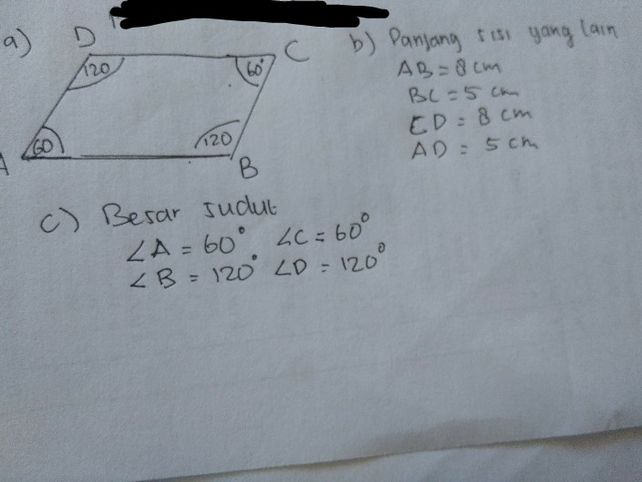 a)
D
C
120
60°
60
120
A
B
b) Panjang sisi yang lain
AB = 8 cm
BC = 5 cm
CD = 8 cm
AD = 5 cm
c) Besar sudut
∠A = 60° ∠C = 60°
∠B = 120° ∠D = 120°